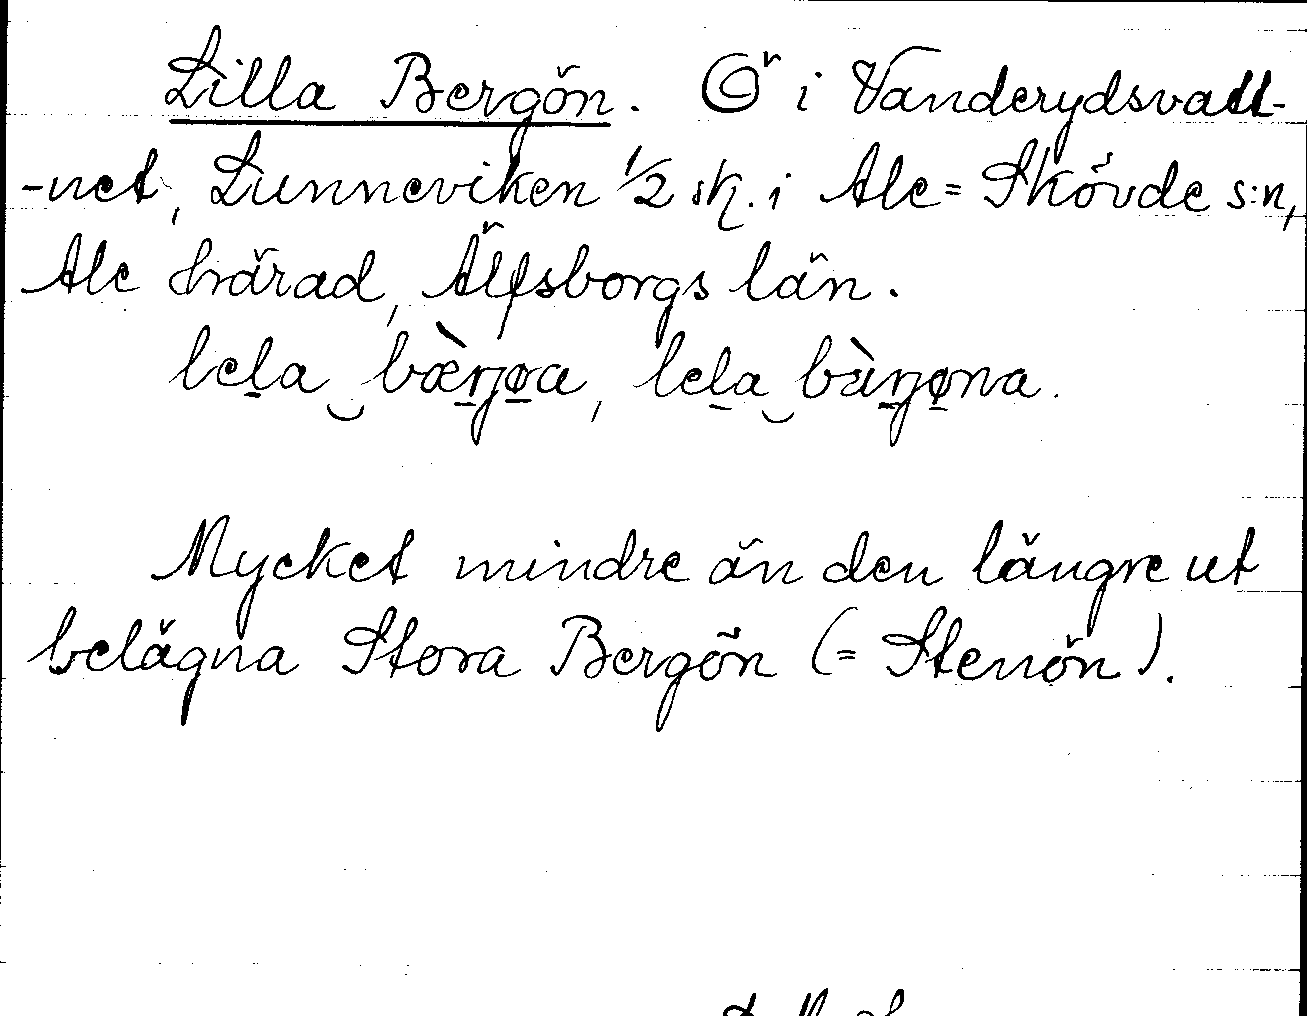 Lilla Bergön. Ö i Vanderydsvatt-
-net, Lunneviken 1/2 sk. i Ale=Skövde s:n,
Ale härad, Älfsborgs län.
Mycket mindre än den längre ut
belägna Stora Bergön (= Stenön).